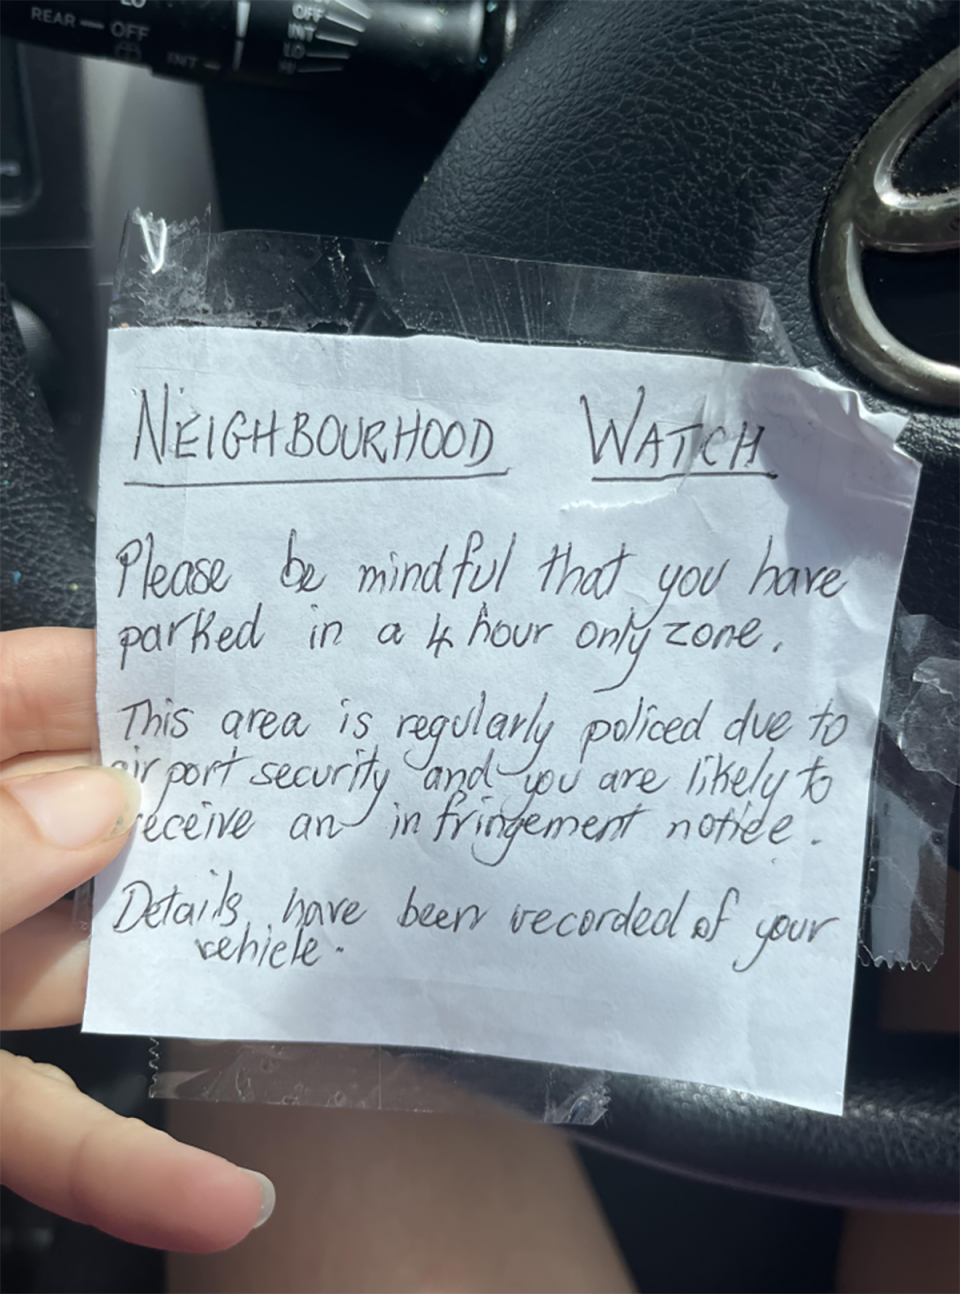 LO
REAR — OFF
INT
OFF
INT
LO
HI
NEIGHBOURHOOD WATCH
Please be mindful that you have
parked in a 4 hour only zone.
This area is regularly policed due to
airport security and you are likely to
receive an infringement notice.
Details have been recorded of your
vehicle.